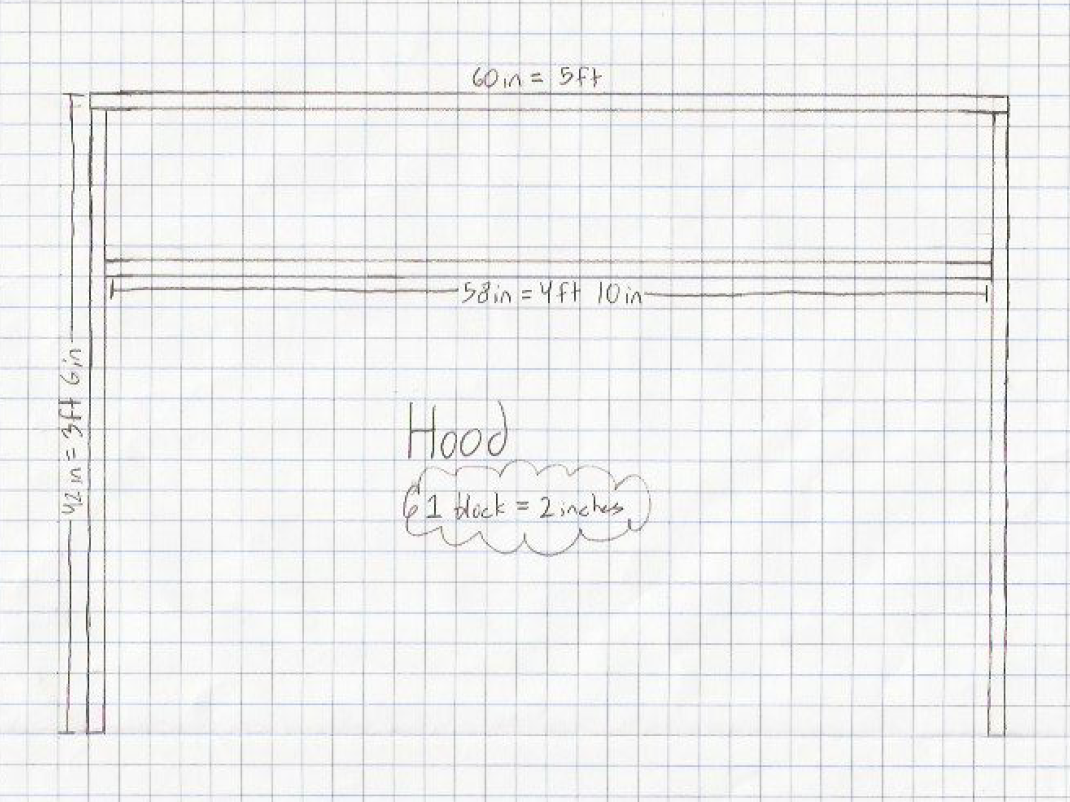 60in = 5ft
58in = 4ft 10in
42in = 3ft 6in
Hood
1 block = 2 inches